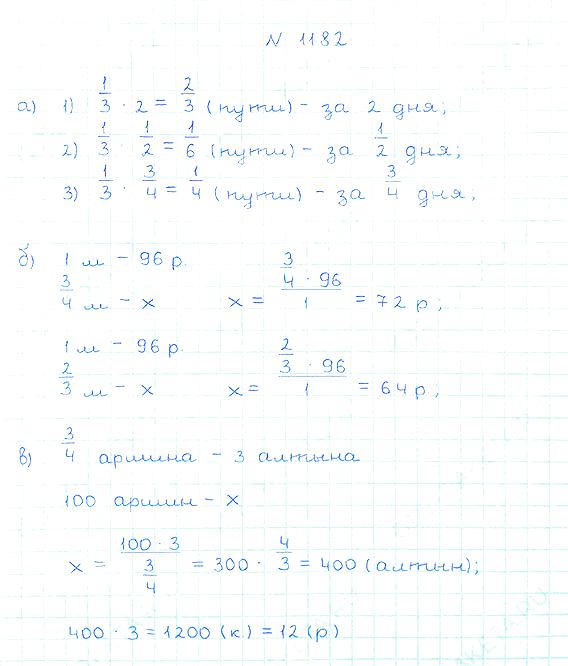 N 1182
а) 1) 1/3 · 2 = 2/3 (пути) - за 2 дня;
2) 1/3 · 1/2 = 1/6 (пути) - за 1/2 дня;
3) 1/3 · 3/4 = 1/4 (пути) - за 3/4 дня;
б) 1 м - 96 р.
3/4 м - x x = (3/4 · 96)/1 = 72 р;
1 м - 96 р.
2/3 м - x x = (2/3 · 96)/1 = 64 р;
в) 3/4 аршина - 3 алтына
100 аршин - x
x = (100 · 3)/(3/4) = 300 · 4/3 = 400 (алтын);
400 · 3 = 1200 (к) = 12 (р)